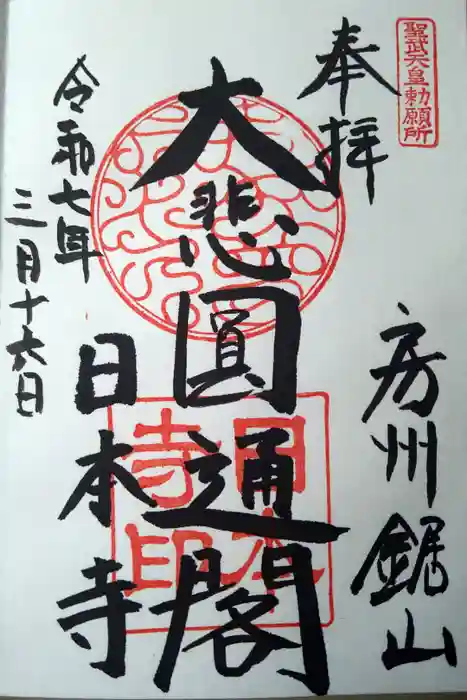 聖武天皇勅願所
奉拝
房州鋸山
大悲圓通閣
日本寺
令和七年
三月十六日
日本
寺印